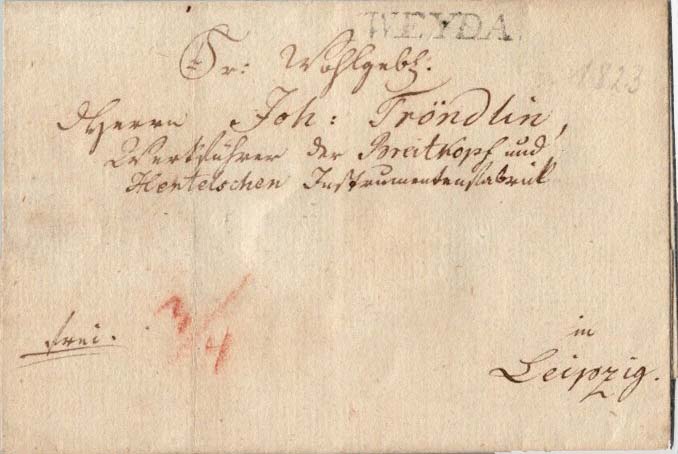 WEYDA.
Sr: Wohlgeb:
1823
Herrn Joh: Tröndlin,
Werkführer der Breitkopf und
Hertelschen Instrumentenfabrik
frei.
3/4
in
Leipzig.